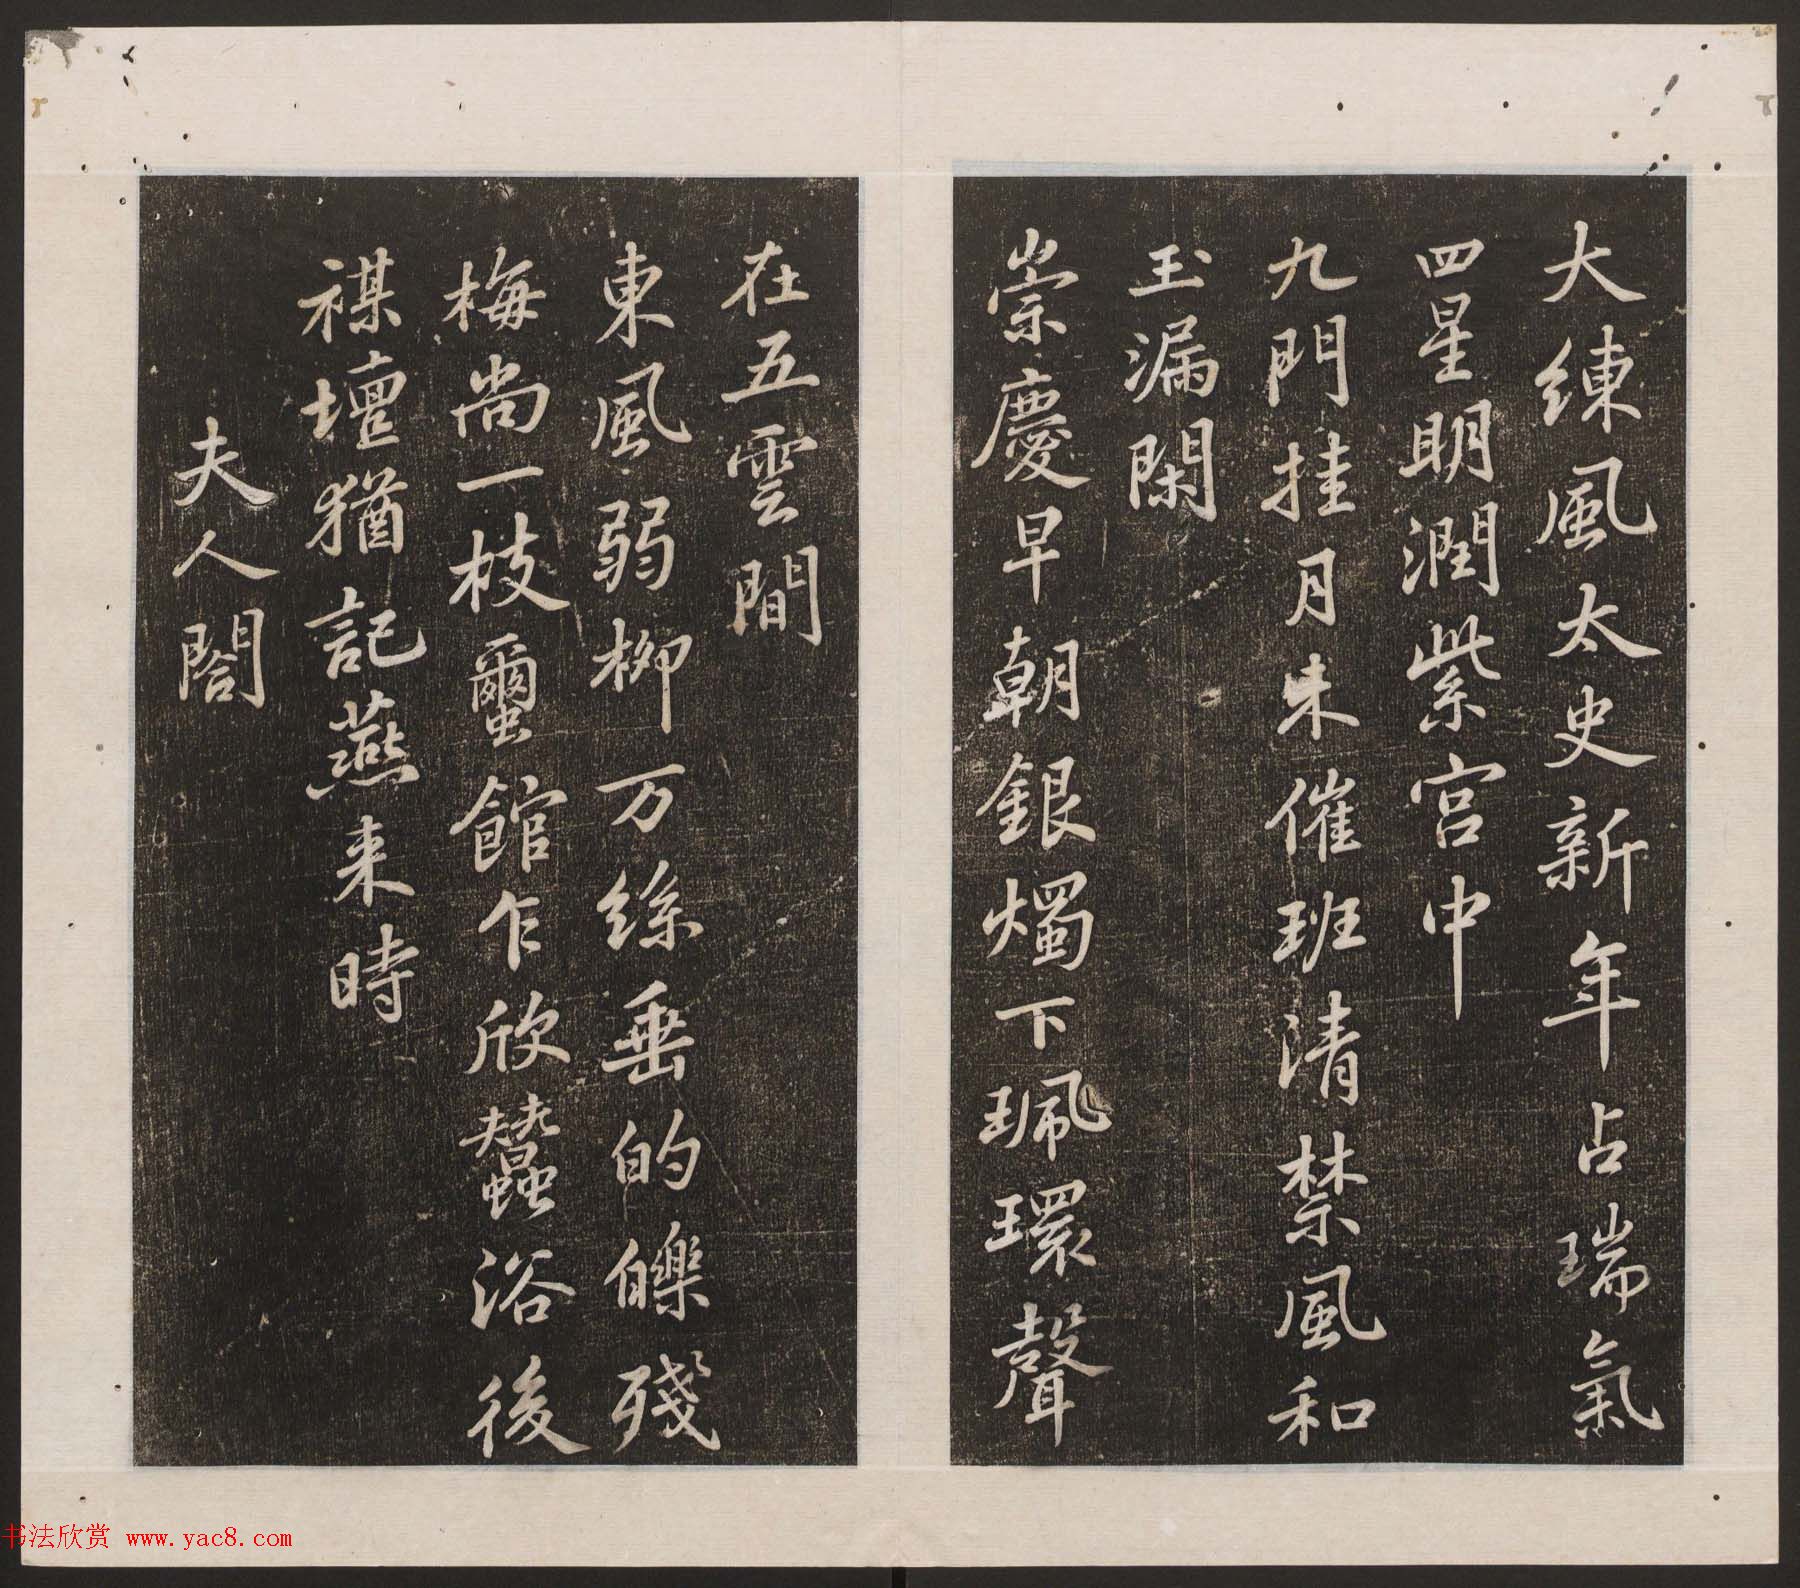 大練風太史新年占瑞氣
四星明潤紫宮中
九門挂月未催班清禁風和
玉漏閑
崇慶早朝銀燭下珮環聲
在五雲間
東風弱柳万絲垂的皪殘
梅尚一枝蠒館乍欣蠶浴後
禖壇猶記燕来時
夫人閤
书法欣赏 www.yac8.com